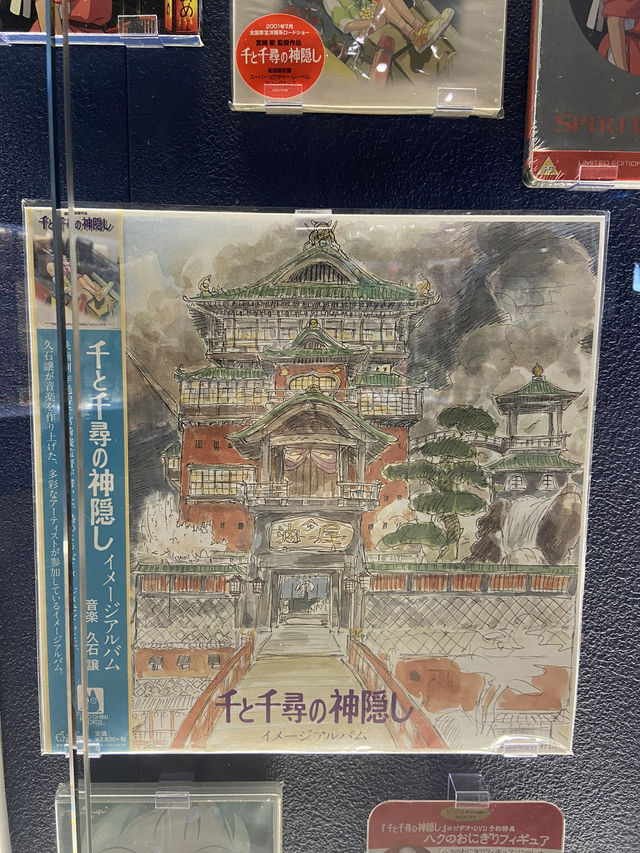 め
2001年7月
全国東宝洋画系ロードショー
宮崎 駿 監督作品
千と千尋の神隠し
SPIRI
LIMITED EDITION
千と千尋の神隠し
千と千尋の神隠し イメージアルバム
音楽 久石 譲
久石譲が音楽を作り上げた、多彩なアーティストが参加しているイメージアルバム。
定価
¥3,800+税
油屋
千と千尋の神隠し
イメージアルバム
『千と千尋の神隠し』のビデオ・DVD予約特典
ハクのおにぎりフィギュア